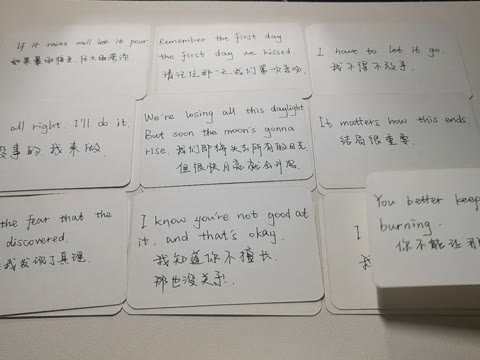 If it rains well let it pour
如果暴雨将至,
Remember the first day
the first day we kissed.
请记住那一天,我们第一次亲吻
I have to let it go.
我不得不放手.
all right. I'll do it.
没事的,我来做
We're losing all this daylight
But soon the moon's gonna
rise. 我们即将失去所有的日光
但很快月亮就会升起.
It matters how this ends
结局很重要.
the fear that the
discovered.
我发现了真理.
I know you're not good at
it, and that's okay.
我知道你不擅长,
那也没关系!
I
我
You better keep
burning.
你不能让